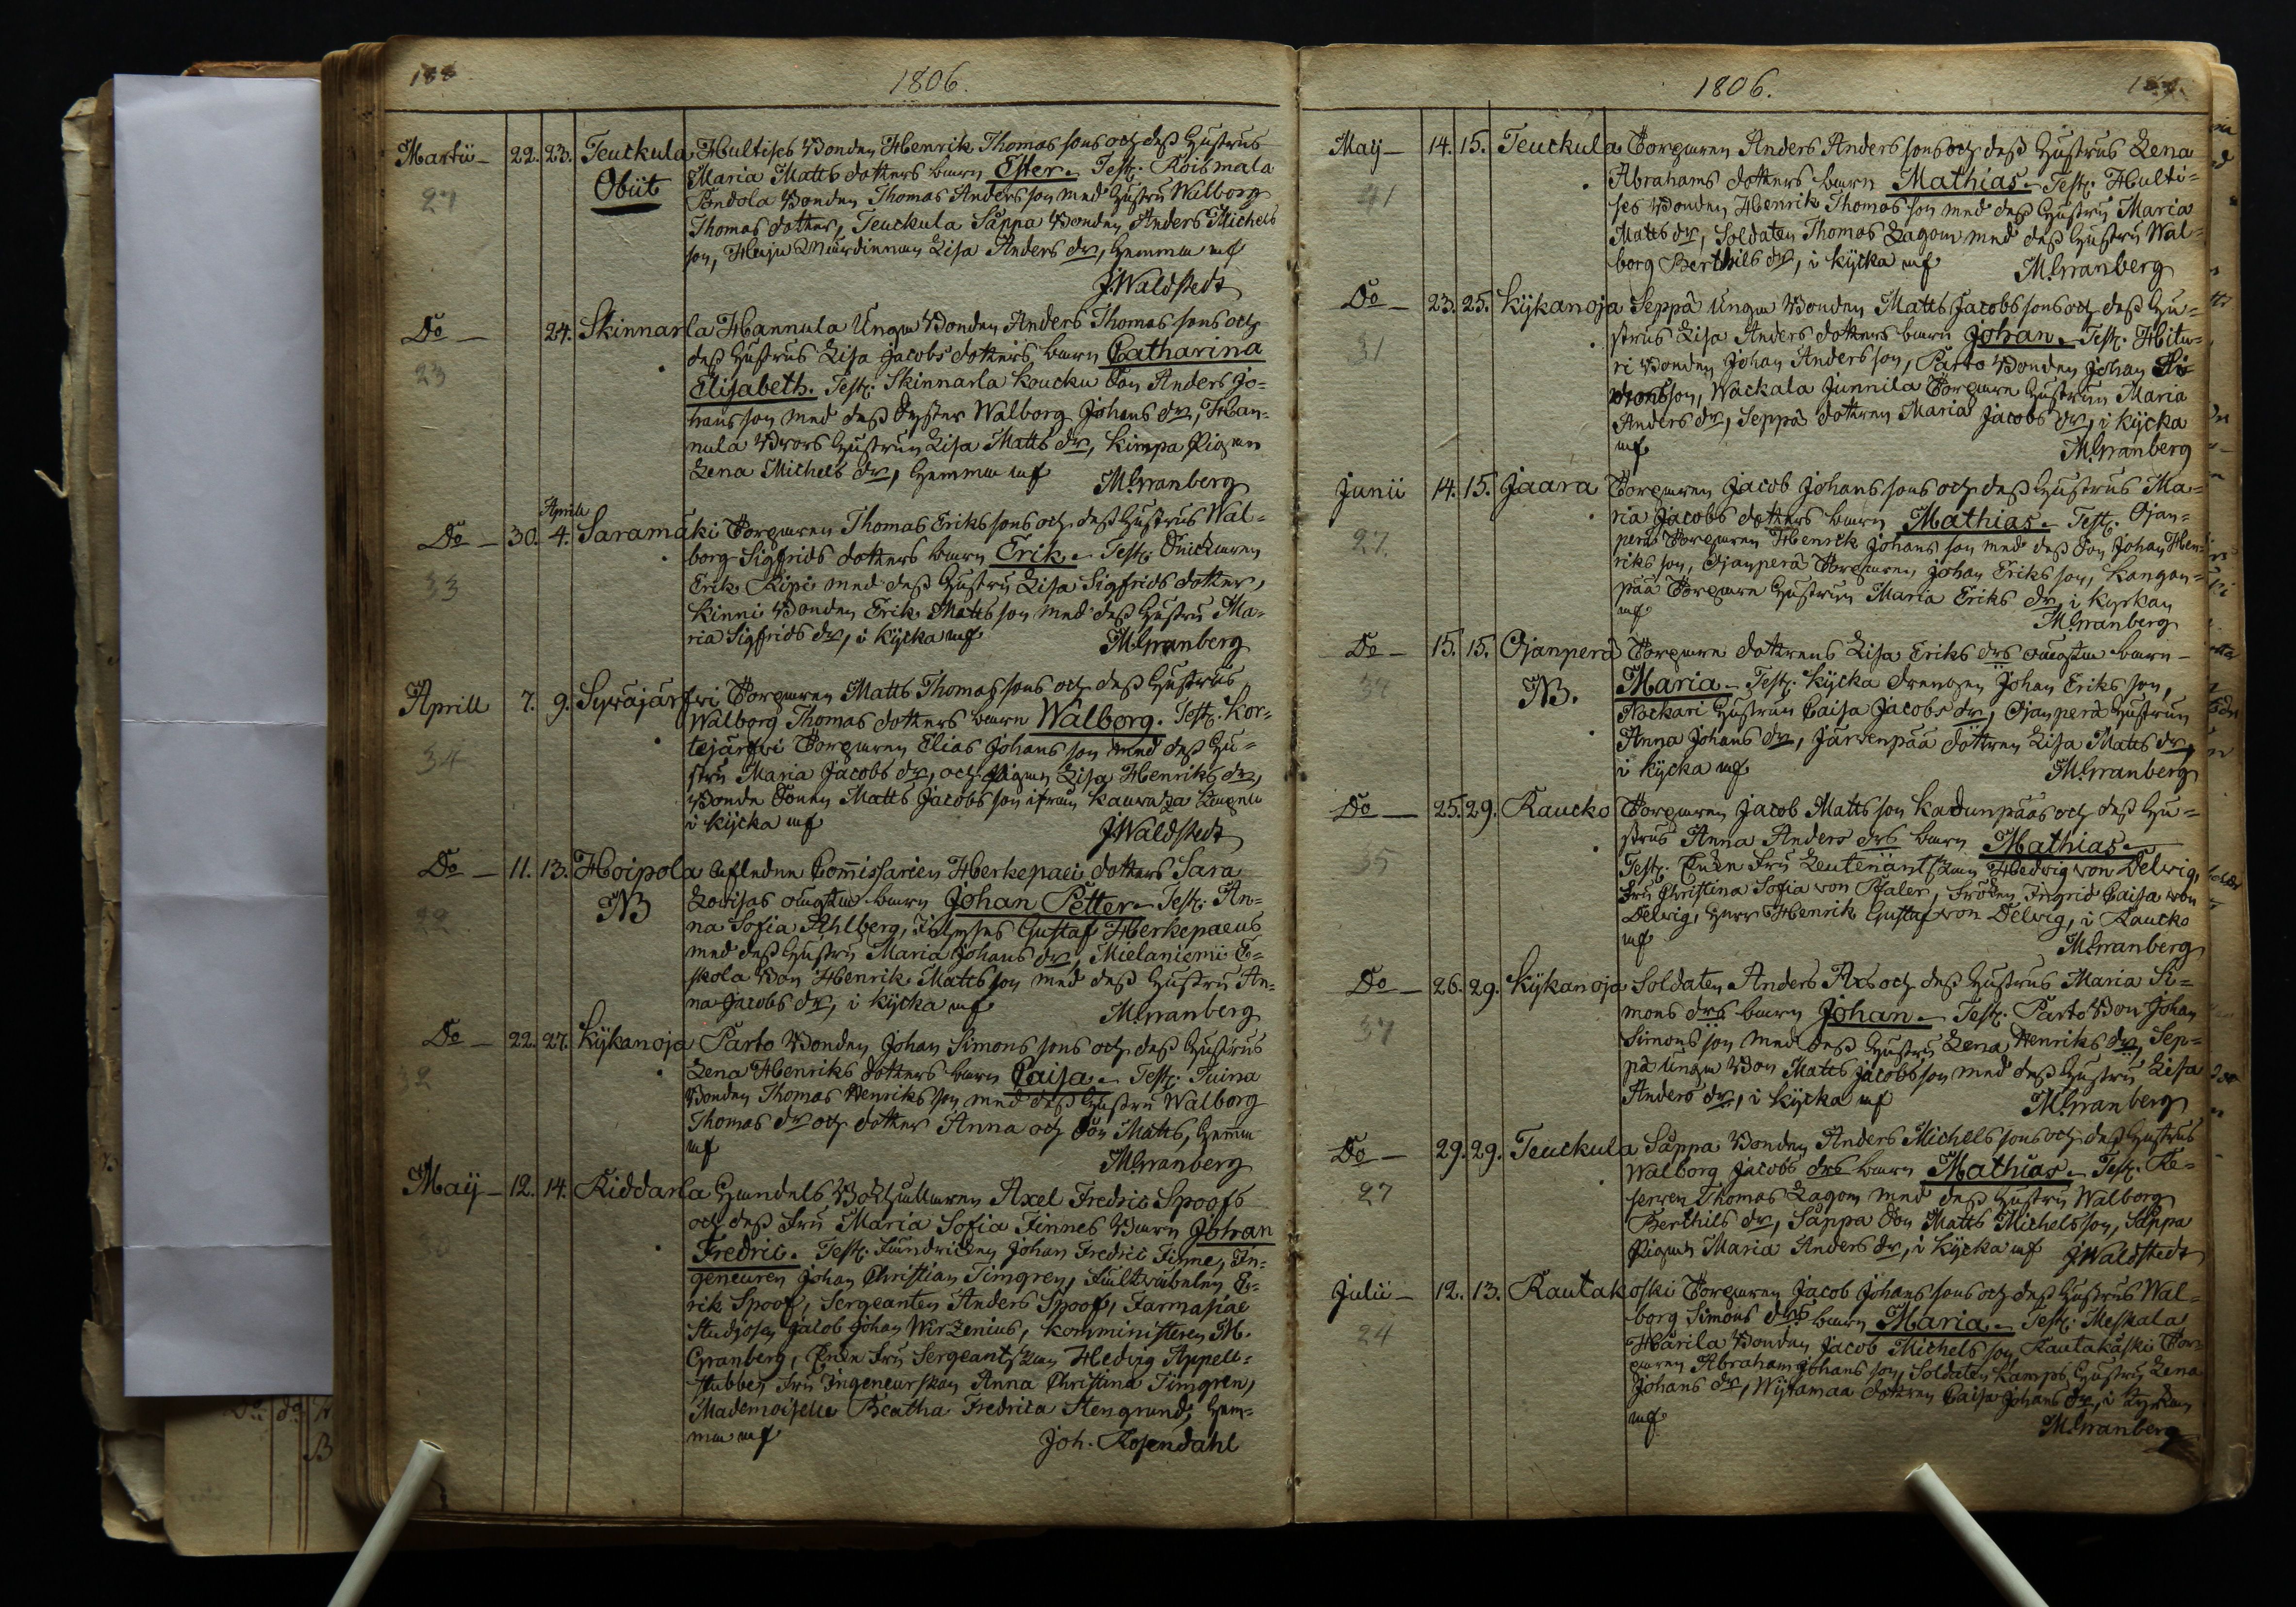 188
1806.
Martii — 22. 23. Teuckula Hultises Bonden Henrik Thomas sons och dess Hustrus
27 Obiit Maria Matts dotters barn Ester. Test: Roismala
Pendola Bonden Thomas Andersson med Hustru Walborg
Thomas dotter, Teuckula Säppa Bonden Anders Michels
son, Lisa Anders dr, hemma
J. Waldstedt
Do — 24. Skinnarla Hannula Unga Bonden Anders Thomas sons och
23 dess Hustrus Lisa Jacobs dotters barn Catharina
Elisabeth. Test: Skinnarla Koucku Son Anders Jo=
hans son med dess Syster Walborg Johans dr, Han=
nula Brors Hustrun Lisa Matts dr, Kimpa Pigan
Lena Michels dr, hemma
M. Granberg
Do — 30. Aprill 4. Saramäki Torparen Thomas Eriks sons och dess Hustrus Wal=
33 borg Sigfrids dotters barn Erik. Test: Snickaren
Erik Röpi med dess Hustru Lisa Sigfrids dotter,
Kinni Bonden Erik Matts son med dess Hustru Ma=
ria Sigfrids dr, i Kyrka
M. Granberg
Aprill 7. 9. Sywäjärfwi Torparen Matts Thomas sons och dess Hustrus
34 Walborg Thomas dotters barn Walborg. Test: Kor=
tejärfwi Torparen Elias Johans son med dess Hu=
stru Maria Jacobs dr, och Pigan Lisa Henriks dr,
Bonde Sonen Matts Jacobs son ifrån
i Kyrka
J. Waldstedt
Do — 11. 13. Hoipola Aflednne Commissarien Herkepaei dotters Sara
NB Lovisas oäkta barn Johan Petter. Test: An=
22 na Sofia Ahlberg, Gustaf Herkepaeus
med dess Hustru Maria Johans dr, Mielaniemi E=
skola Bon Henrik Matts son med dess Hustru An=
na Jacobs dr, i Kyrka
M. Granberg
Do — 22. 27. Kykanoja Parto Bonden Johan Simons sons och dess Hustrus
32 Lena Henriks dotters barn Caisa. Test: Tuina
Bonden Thomas Henriks son med dess Hustru Walborg
Thomas dr och dotter Anna och Son Matts, hemma
M. Granberg
Maij — 12. 14. Riddarla Handels Bokhållaren Axel Fredric Spoofs
och dess Fru Maria Sofia Finnes Barn Johan
Fredric. Test: Fändricken Johan Fredric Finne, In=
geneuren Johan Christian Timgren, Fältväbeln E=
rik Spoof, Sergeanten Anders Spoof, Farmasiae
Studiosen Jacob Johan Wirzenius, Komministeren M.
Granberg, Enke Fru Sergeantskan Hedvig Appell=
stubben Fru Ingeneurskan Anna Christina Timgren,
Mademoiselle Beatha Fredrica Stengrund, hem=
ma
Joh. Rosendahl
1806.
189.
Maij — 14. 15. Teuckula Torparen Anders Anders sons och dess Hustrus Lena
21 Abrahams dotters barn Mathias. Test: Hulti=
ses Bonden Henrik Thomas son med dess Hustru Maria
Matts dr, Soldaten Thomas Lagom med dess Hustru Wal=
borg Berthils dr, i Kyrka
M. Granberg
Do — 23. 25. Kykanoja Seppä Unga Bonden Matts Jacobs sons och dess Hu=
31 strus Lisa Anders dotters barn Johan. Test: Hitu=
ri Bonden Johan Anders son, Parto Bonden Johan Si=
mons son, Wackala Junnila Torpare Hustrun Maria
Anders dr, Seppä dottren Maria Jacobs dr, i Kyrka
M. Granberg
Junii 14. 15. Jaara Torparen Jacob Johans sons och dess Hustrus Ma=
27. ria Jacobs dotters barn Mathias. Test: Ojan=
perä Torparen Henrik Johans son med dess Son Johan Hen=
riks son, Ojanperä Torparen Johan Eriks son, Kangan=
pää Torpare Hustrun Maria Eriks dr, i Kyrkan
M. Granberg
Do — 15. 15. Ojanperä Torpare dottrens Lisa Eriks drs oäkta barn
NB. Maria. Test: Kycka Drengen Johan Eriks son,
Nockari Hustrun Caisa Jacobs dr, Ojanperä Hustrun
Anna Johans dr, Järwenpää dottren Lisa Matts dr,
i Kyrka
M. Granberg
Do — 25. 29. Raucko Torparen Jacob Matts son Kadunpääs och dess Hu=
35 strus Anna Anders drs barn Mathias.
Test: Enke Fru Leutenantskan Hedwig von Delwig,
Fru Christina Sofia von Pfaler, Fröken Ingrid Caisa von
Delwig, Herr Henrik Gustaf von Delwig, i Raucko
M. Granberg
Do — 26. 29. Kykanoja Soldaten Anders Ax's och dess Hustrus Maria Si=
37 mons drs barn Johan. Test: Parto Bon Johan
Simons son med dess Hustru Lena Henriks dr, Sep=
pä Unga Bon Matts Jacobs son med dess Hustru Lisa
Anders dr, i Kyrka
M. Granberg
Do — 29. 29. Teuckula Säppa Bonden Anders Michels sons och dess Hustrus
27 Walborg Jacobs drs barn Mathias. Test: Re=
serven Thomas Lagom med dess Hustru Walborg
Berthils dr, Säppa Son Matts Michelsson, Säppa
Pigan Maria Anders dr, i Kyrka
J. Waldstedt
Julii — 12. 13. Rautakoski Torparen Jacob Johans sons och dess Hustrus Wal=
24 borg Simons drs barn Maria. Test: Meskala
Harila Bonden Jacob Michels son Rautakåski Tor=
paren Abraham Johans son, Soldaten Kamps Hustru Lena
Johans dr, Wijtamaa dottren Caisa Johans dr, i Kyrkan
M. Granberg